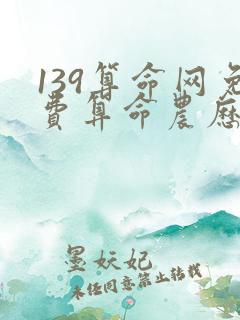 139算命网免
费算命農历
墨妖妃
未经同意禁止转载